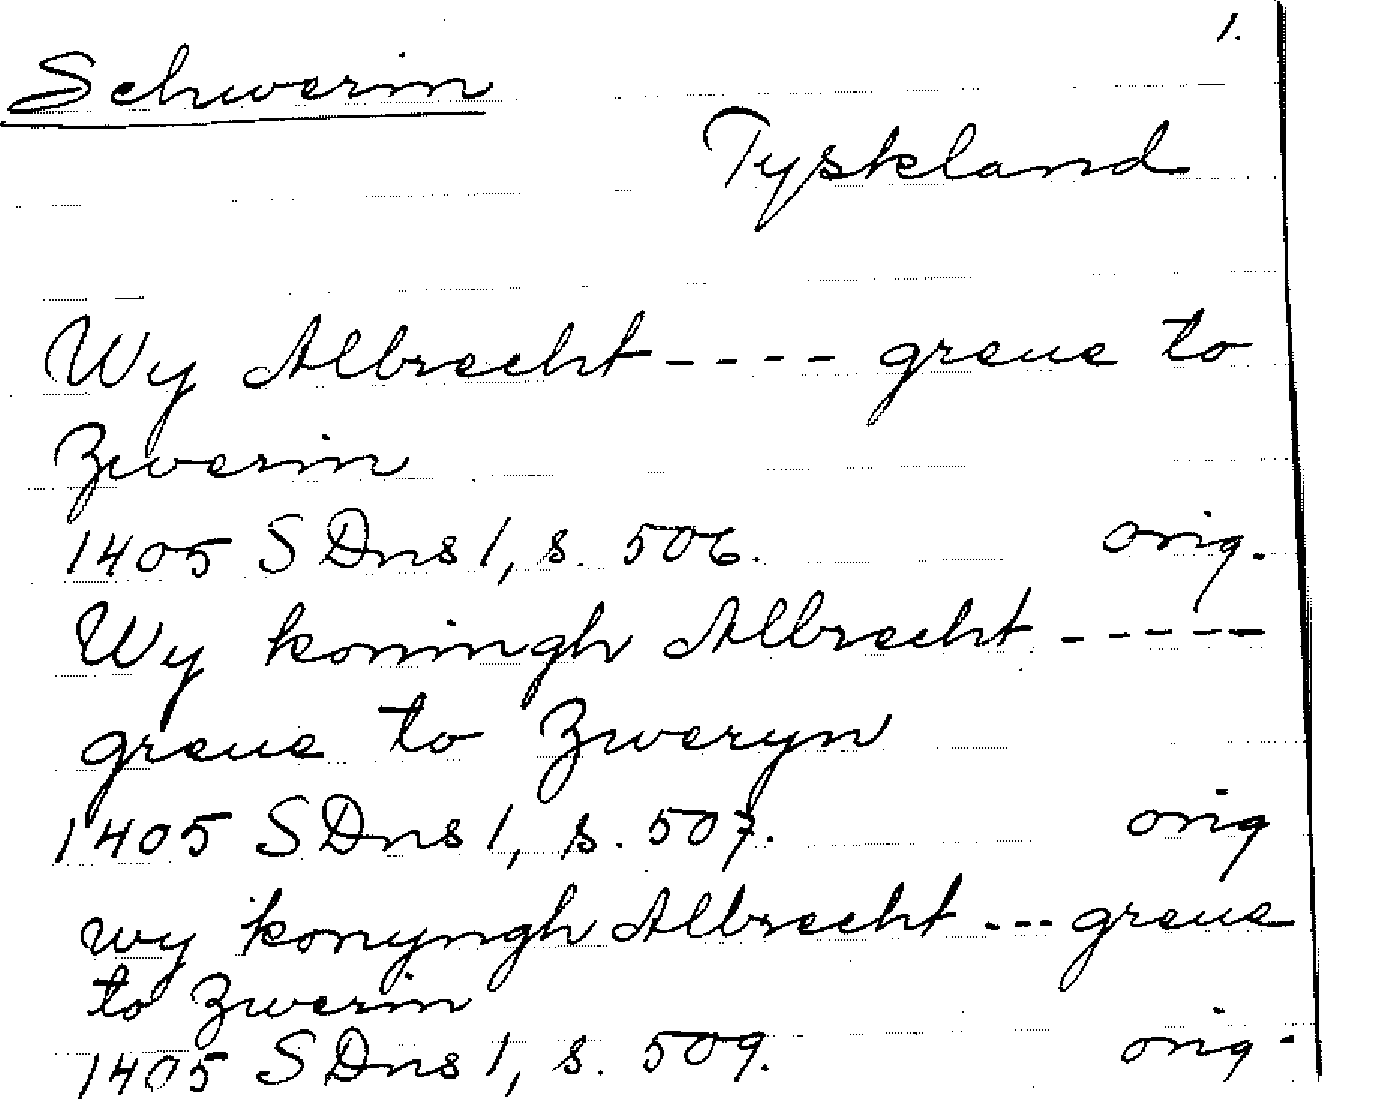 1.
Schwerin
Tyskland
Wy Albrecht ---- greue to
Zwerin
1405 SDns 1, s. 506. orig.
Wy koningh Albrecht -----
greue to Zweryn
1405 SDns 1, s. 507. orig
wy konyngh Albrecht --- greue
to Zwerin
1405 SDns 1, s. 509. orig.